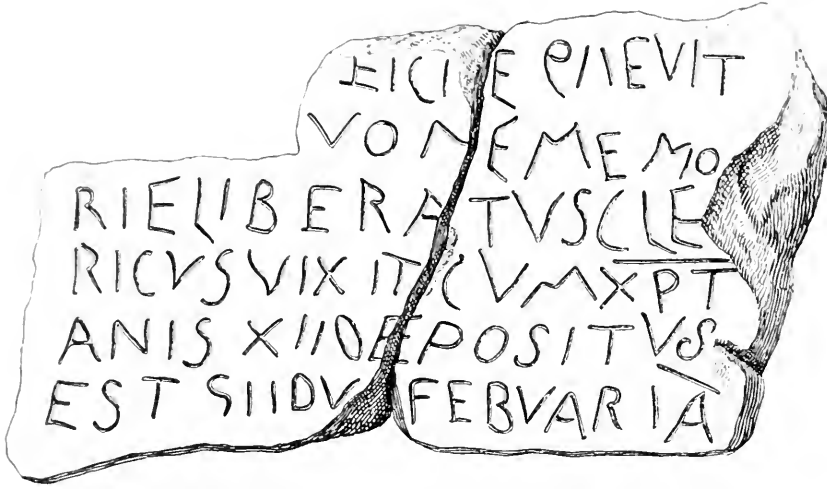 HICIE QIIEVIT
VONEMEMO
RIELIBERATVSCLE
RICVSVIXITCVMXPT
ANIS XIIDEPOSITVS
EST SIIDV FEBVARIA